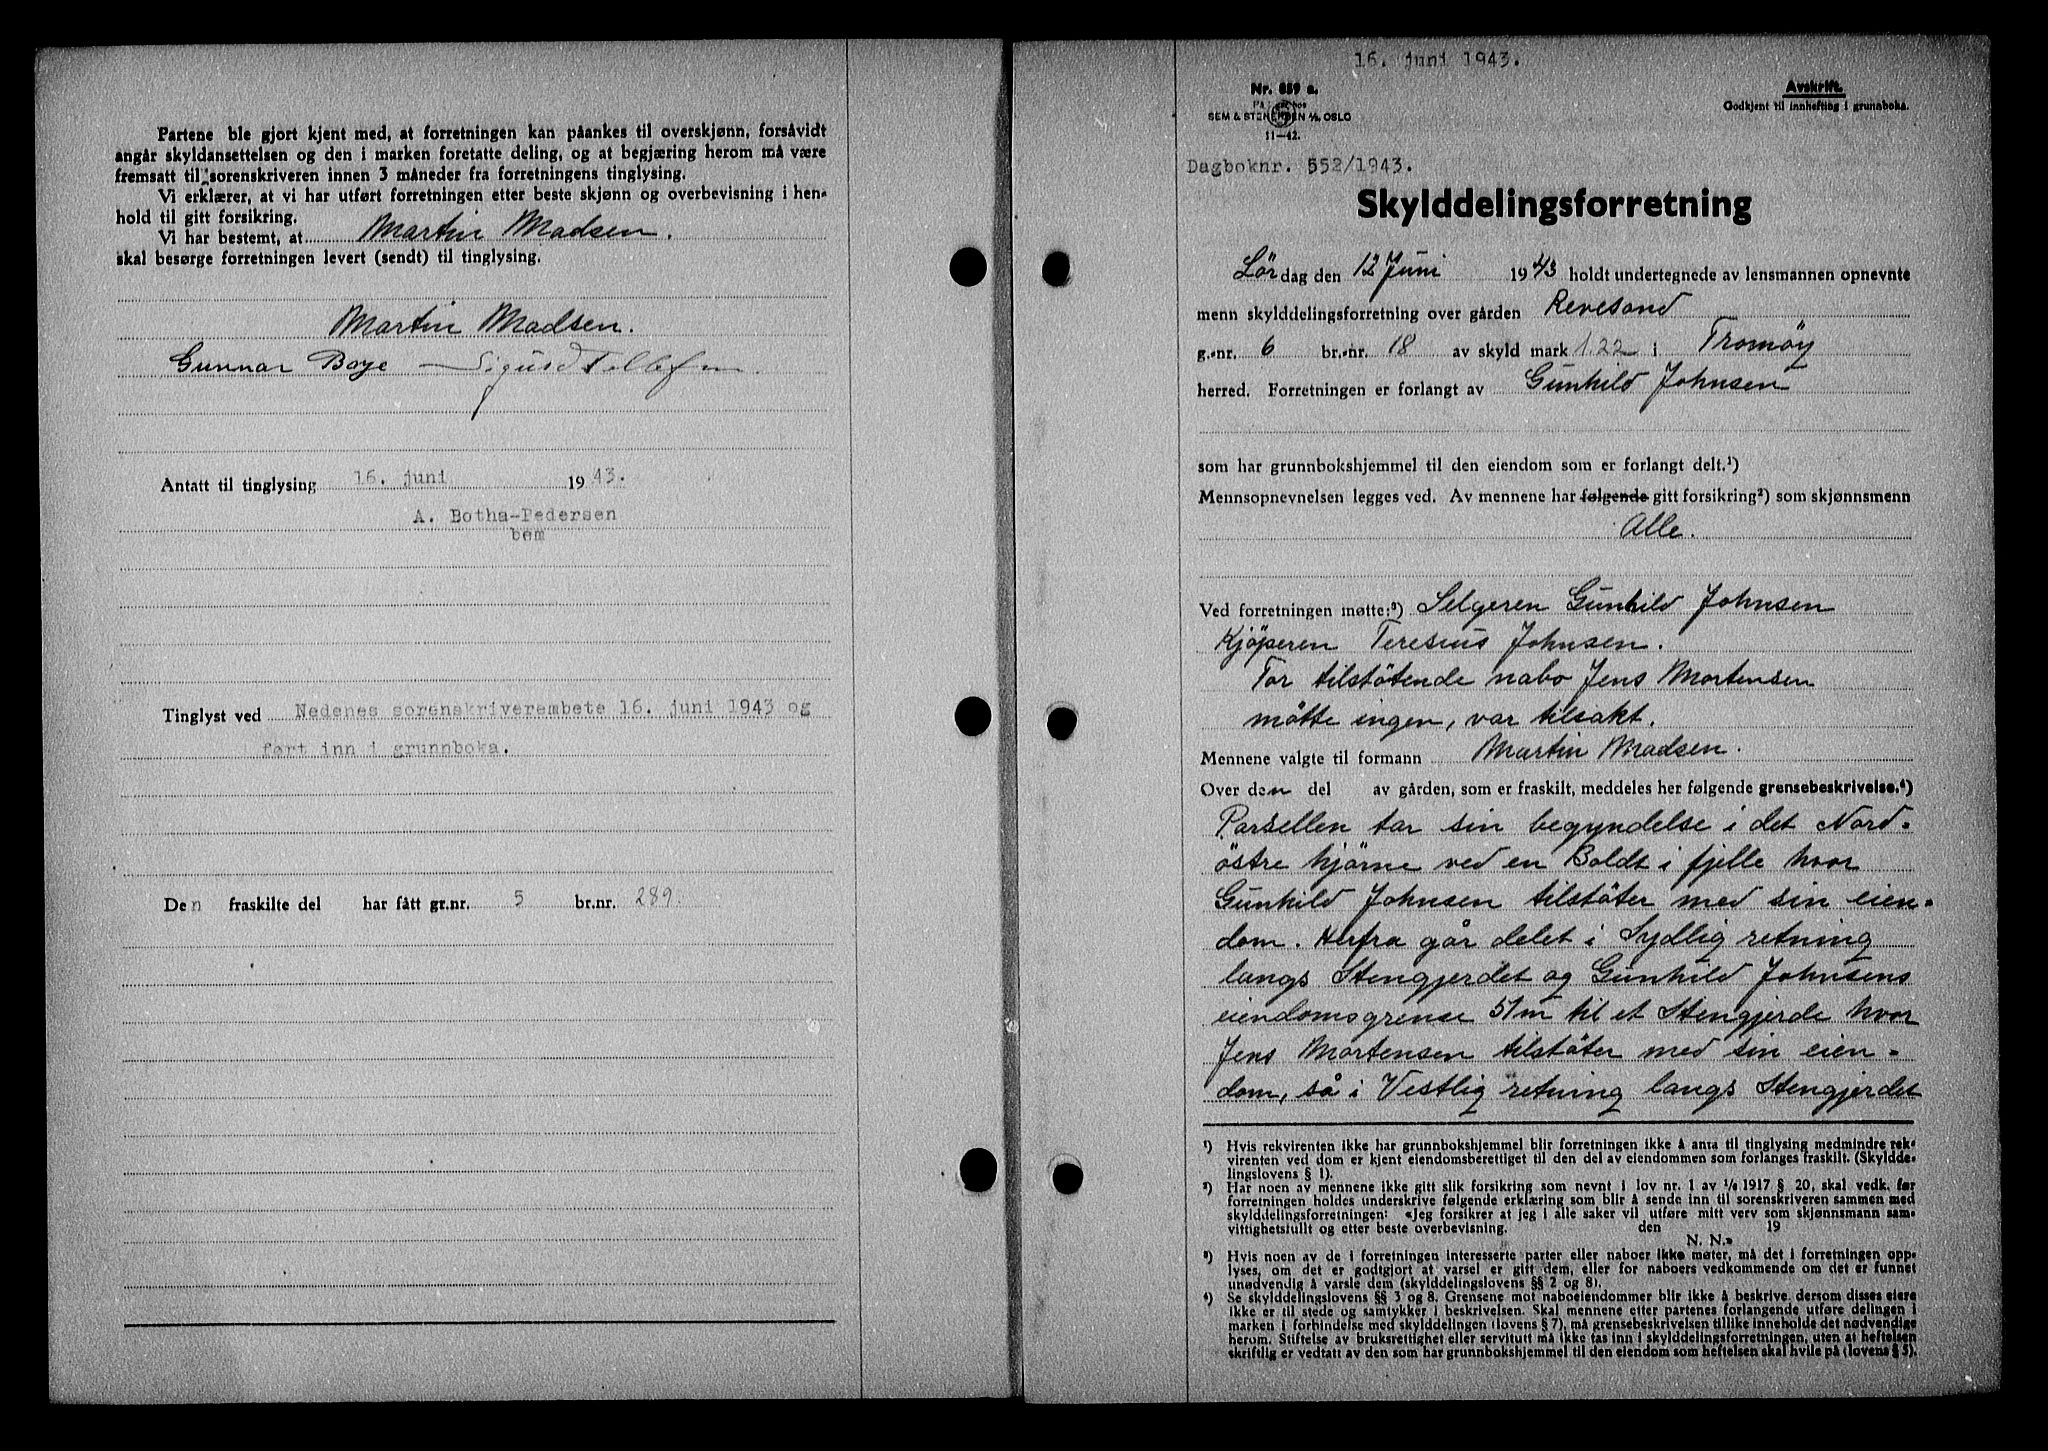 Partene ble gjort kjent med, at forretningen kan påankes til overskjønn, forsåvidt
angår skyldansettelsen og den i marken foretatte deling, og at begjæring herom må være
fremsatt til sorenskriveren innen 3 måneder fra forretningens tinglysing.
Vi erklærer, at vi har utført forretningen etter beste skjønn og overbevisning i hen-
hold til gitt forsikring.
Vi har bestemt, at Martin Madsen.
skal besørge forretningen levert (sendt) til tinglysing.
Martin Madsen.
Gunnar Boye – Sigurd Tellefsen
Antatt til tinglysing 16. juni 1943.
A. Botha-Pedersen
bem
Tinglyst ved Nedenes sorenskriverembete 16. juni 1943 og
ført inn i grunnboka.
Den fraskilte del har fått gr.nr. 5 br.nr. 289.
16. juni 1943.
Nr. 859 a.
SEM & STENERSEN A/S, OSLO
11—42.
Avskrift.
Godkjent til innhefting i grunnboka.
Dagboknr. 552/1943.
Skylddelingsforretning
Lördag den 12 Juni 1943 holdt undertegnede av lensmannen opnevnte
menn skylddelingsforretning over gården Revesand
g.-nr. 6 br.-nr. 18 av skyld mark 1.22 i Tromöy
herred. Forretningen er forlangt av Gunhild Johnsen
som har grunnbokshjemmel til den eiendom som er forlangt delt.¹)
Mennsopnevnelsen legges ved. Av mennene har følgende gitt forsikring²) som skjønnsmenn
Alle.
Ved forretningen møtte:³) Selgeren Gunhild Johnsen
Kjöperen Teresius Johnsen.
For tilstötende nabo Jens Mortensen
mötte ingen, var tilsakt.
Mennene valgte til formann Martin Madsen.
Over den del av gården, som er fraskilt, meddeles her følgende grensebeskrivelse.⁴)
Parsellen tar sin begyndelse i det Nord-
östre hjörne ved en Boldt i fjelle hvor
Gunhild Johnsen tilstöter med sin eien-
dom. Herfra går delet i Sydlig retning
langs Stengjerdet og Gunhild Johnsens
eiendomsgrense 51 m til et Stengjerde hvor
Jens Mortensen tilstöter med sin eien-
dom, så i Vestlig retning langs Stengjerdet
¹) Hvis rekvirenten ikke har grunnbokshjemmel blir forretningen ikke å anta til tinglysing medmindre rek-
virenten ved dom er kjent eiendomsberettiget til den del av eiendommen som forlanges fraskilt. (Skyldde-
lingslovens § 1).
²) Har noen av mennene ikke gitt slik forsikring som nevnt i lov nr. 1 av 1/6 1917 § 20, skal vedk. før
forretningen holdes underskrive følgende erklæring som blir å sende inn til sorenskriveren sammen med
skylddelingsforretningen: «Jeg forsikrer at jeg i alle saker vil utføre mitt verv som skjønnsmann sam-
vittighetsfullt og etter beste overbevisning. den 19
N. N.»
³) Hvis noen av de i forretningen interesserte parter eller naboer ikke møter, må det i forretningen opp-
lyses, om det er godtgjort at varsel er gitt dem, eller for naboers vedkommende om det er funnet
unødvendig å varsle dem (skylddelingslovens §§ 2 og 8).
⁴) Se skylddelingslovens §§ 3 og 8. Grensene mot naboeiendommer blir ikke å beskrive, dersom disses eiere
ikke er til stede og samtykker i beskrivelsen. Skal mennene etter partenes forlangende utføre delingen i
marken i forbindelse med skylddelingen (lovens § 7), må grensebeskrivelsen tillike inneholde det nødvendige
herom. Stiftelse av bruksrettighet eller servitutt må ikke tas inn i skylddelingsforretningen, uten at heftelsen
skriftlig er vedtatt av den som har grunnbokshjemmel til den eiendom som heftelsen skal hvile på (lovens § 5).